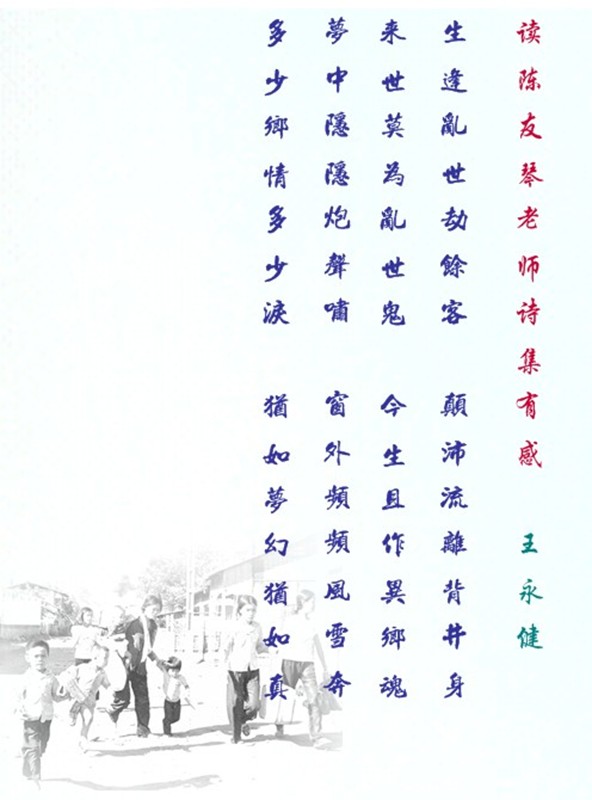 读陈友琴老师诗集有感 王永健
生逢亂世劫餘客 顛沛流離背井身
来世莫為亂世鬼 今生且作異鄉魂
夢中隱隱炮聲嘯 窗外頻頻風雪奔
多少鄉情多少淚 猶如夢幻猶如真